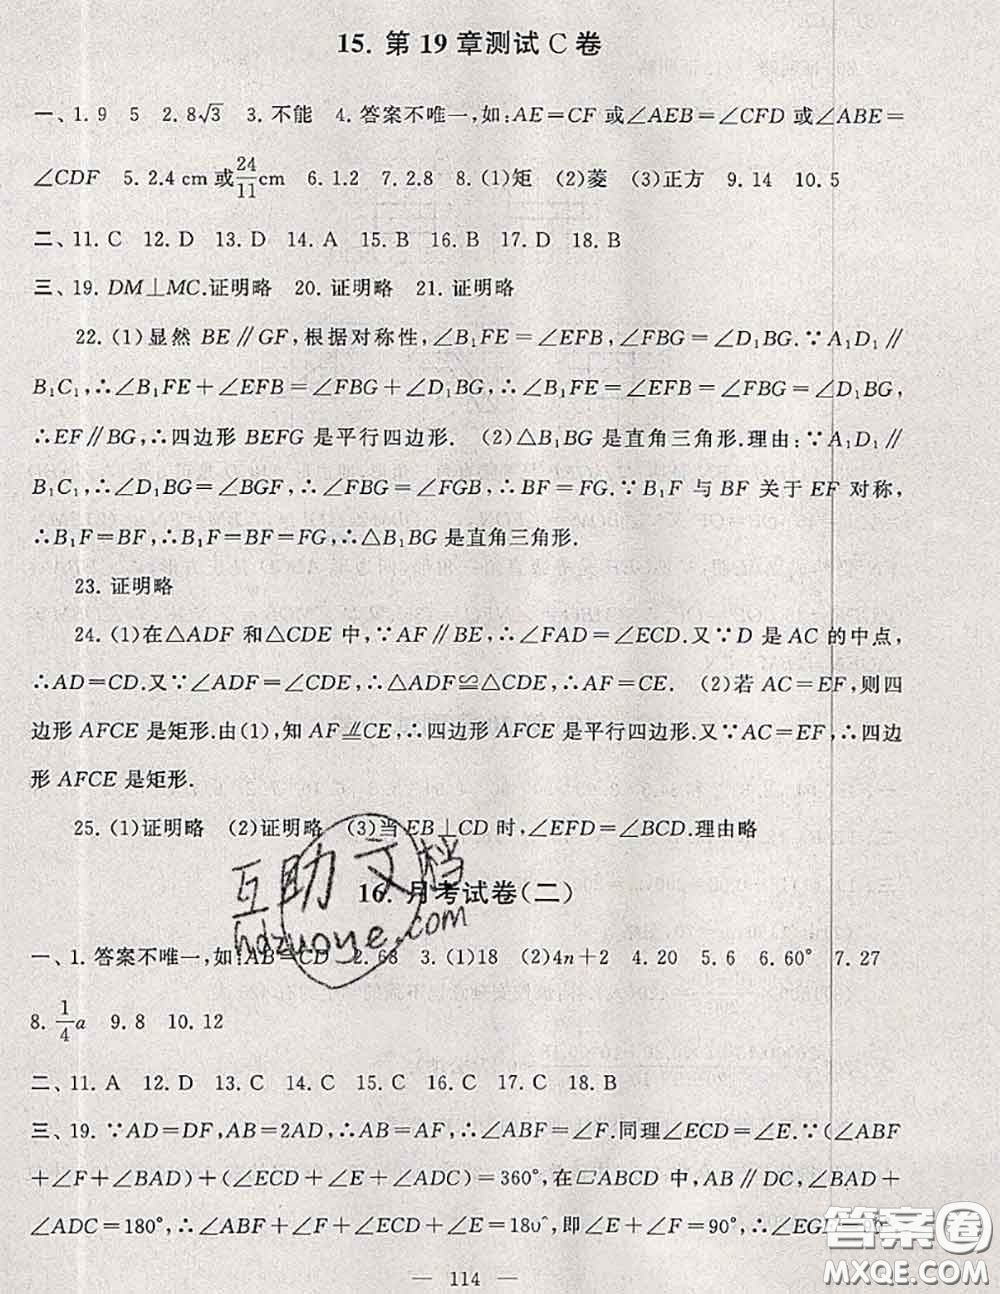 15. 第 19 章测试 C 卷
一、1. 9  5  2. 8√3  3. 不能  4. 答案不唯一,如:AE=CF 或∠AEB=∠CFD 或∠ABE=
∠CDF  5. 2.4 cm 或 24/11 cm  6. 1.2  7. 2.8  8. (1)矩  (2)菱  (3)正方  9. 14  10. 5
二、11. C  12. D  13. D  14. A  15. B  16. B  17. D  18. B
三、19. DM⊥MC.证明略  20. 证明略  21. 证明略
22. (1)显然 BE∥GF,根据对称性,∠B₁FE=∠EFB,∠FBG=∠D₁BG.∵A₁D₁∥
B₁C₁,∴∠B₁FE+∠EFB=∠FBG+∠D₁BG,∴∠B₁FE=∠EFB=∠FBG=∠D₁BG,
∴EF∥BG,∴四边形 BEFG 是平行四边形.  (2)△B₁BG 是直角三角形.理由:∵A₁D₁∥
B₁C₁,∴∠D₁BG=∠BGF,∴∠FBG=∠FGB,∴BF=FG.∵B₁F 与 BF 关于 EF 对称,
∴B₁F=BF,∴B₁F=BF=FG,∴△B₁BG 是直角三角形.
23. 证明略
24. (1)在△ADF 和△CDE 中,∵AF∥BE,∴∠FAD=∠ECD.又∵D 是 AC 的中点,
∴AD=CD.又∵∠ADF=∠CDE,∴△ADF≌△CDE,∴AF=CE.  (2)若 AC=EF,则四
边形 AFCE 是矩形.由(1),知 AF⫽CE,∴四边形 AFCE 是平行四边形.又∵AC=EF,∴四边
形 AFCE 是矩形.
25. (1)证明略  (2)证明略  (3)当 EB⊥CD 时,∠EFD=∠BCD.理由略
16. 月考试卷(二)
一、1. 答案不唯一,如:AB=CD  2. 68  3. (1)18  (2)4n+2  4. 20  5. 6  6. 60°  7. 27
8. 1/4 a  9. 8  10. 12
二、11. A  12. D  13. C  14. C  15. C  16. C  17. C  18. B
三、19. ∵AD=DF,AB=2AD,∴AB=AF,∴∠ABF=∠F.同理∠ECD=∠E.∵(∠ABF
+∠F+∠BAD)+(∠ECD+∠E+∠ADC)=360°,在▱ABCD 中,AB∥DC,∠BAD+
∠ADC=180°,∴∠ABF+∠F+∠ECD+∠E=180°,即∠E+∠F=90°,∴∠EG
— 114 —
互助文档
hdzuoye.com
答案圈
MXQE.COM